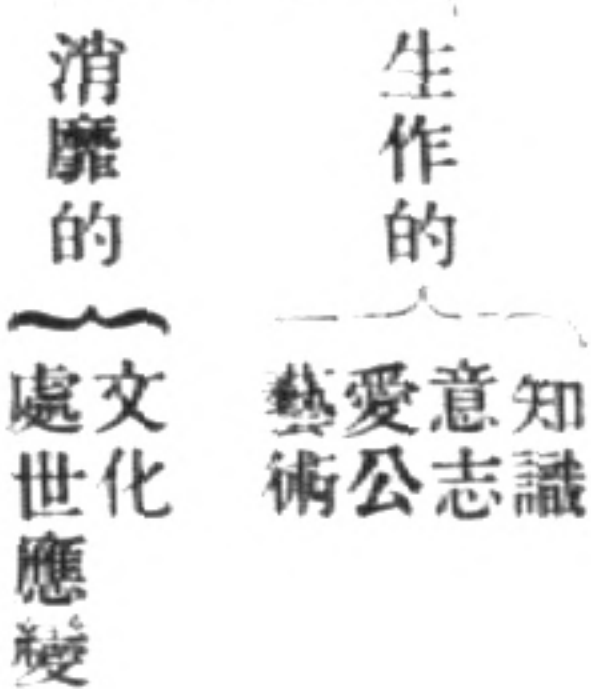 生作的
知識
意志
愛公
藝術
消靡的
文化
處世應變